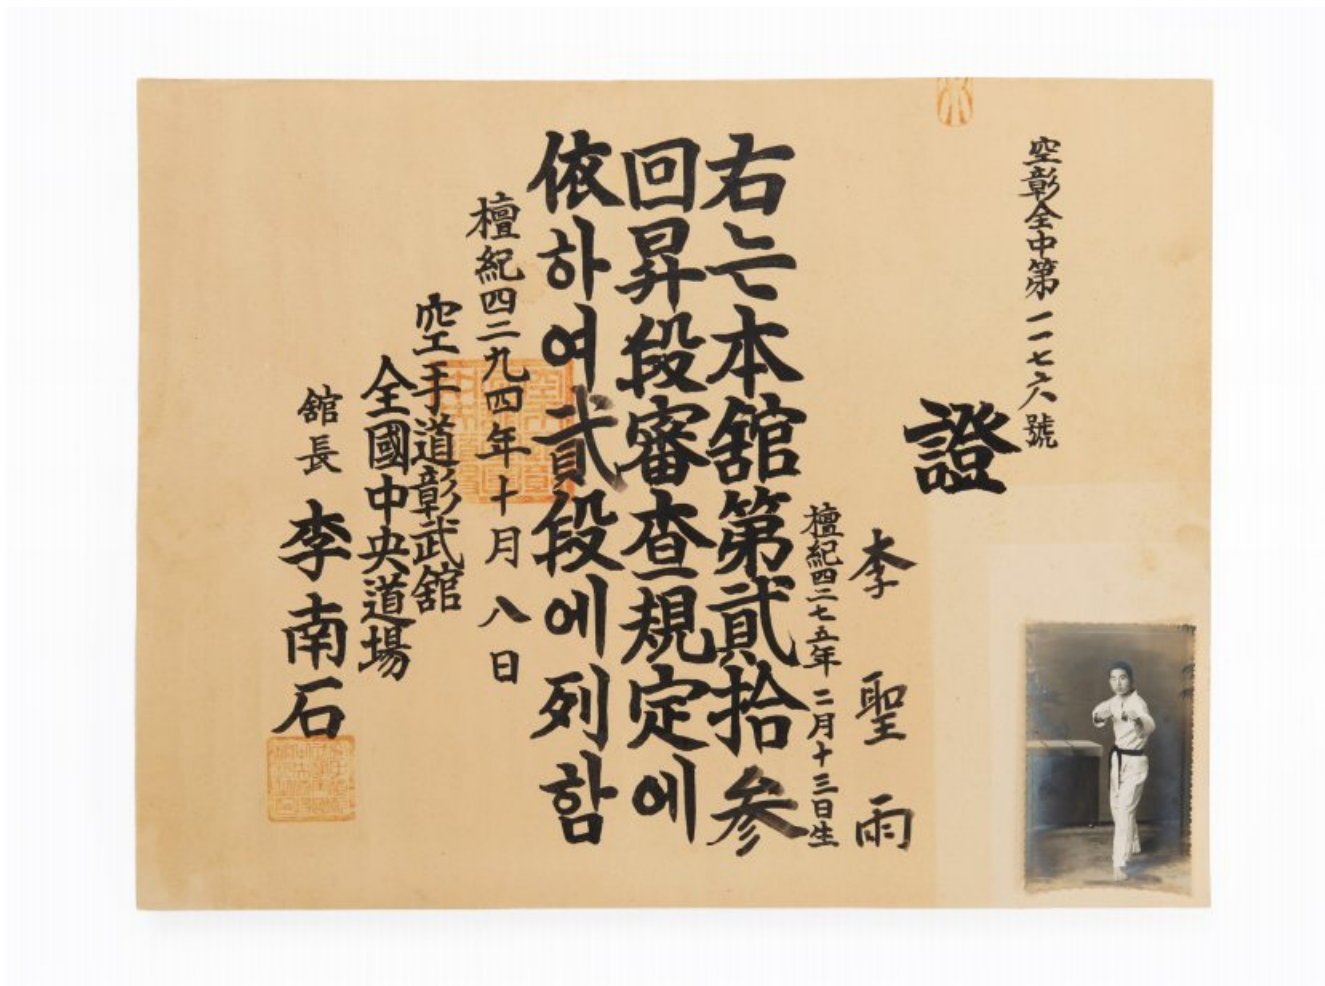 空彰全中第一一七六號
證
李聖雨
檀紀四二七五年二月十三日生
右는本舘第貳拾參
回昇段審査規定에
依하여貳段에列함
檀紀四二九四年十月八日
空手道彰武舘
全國中央道場
舘長 李南石